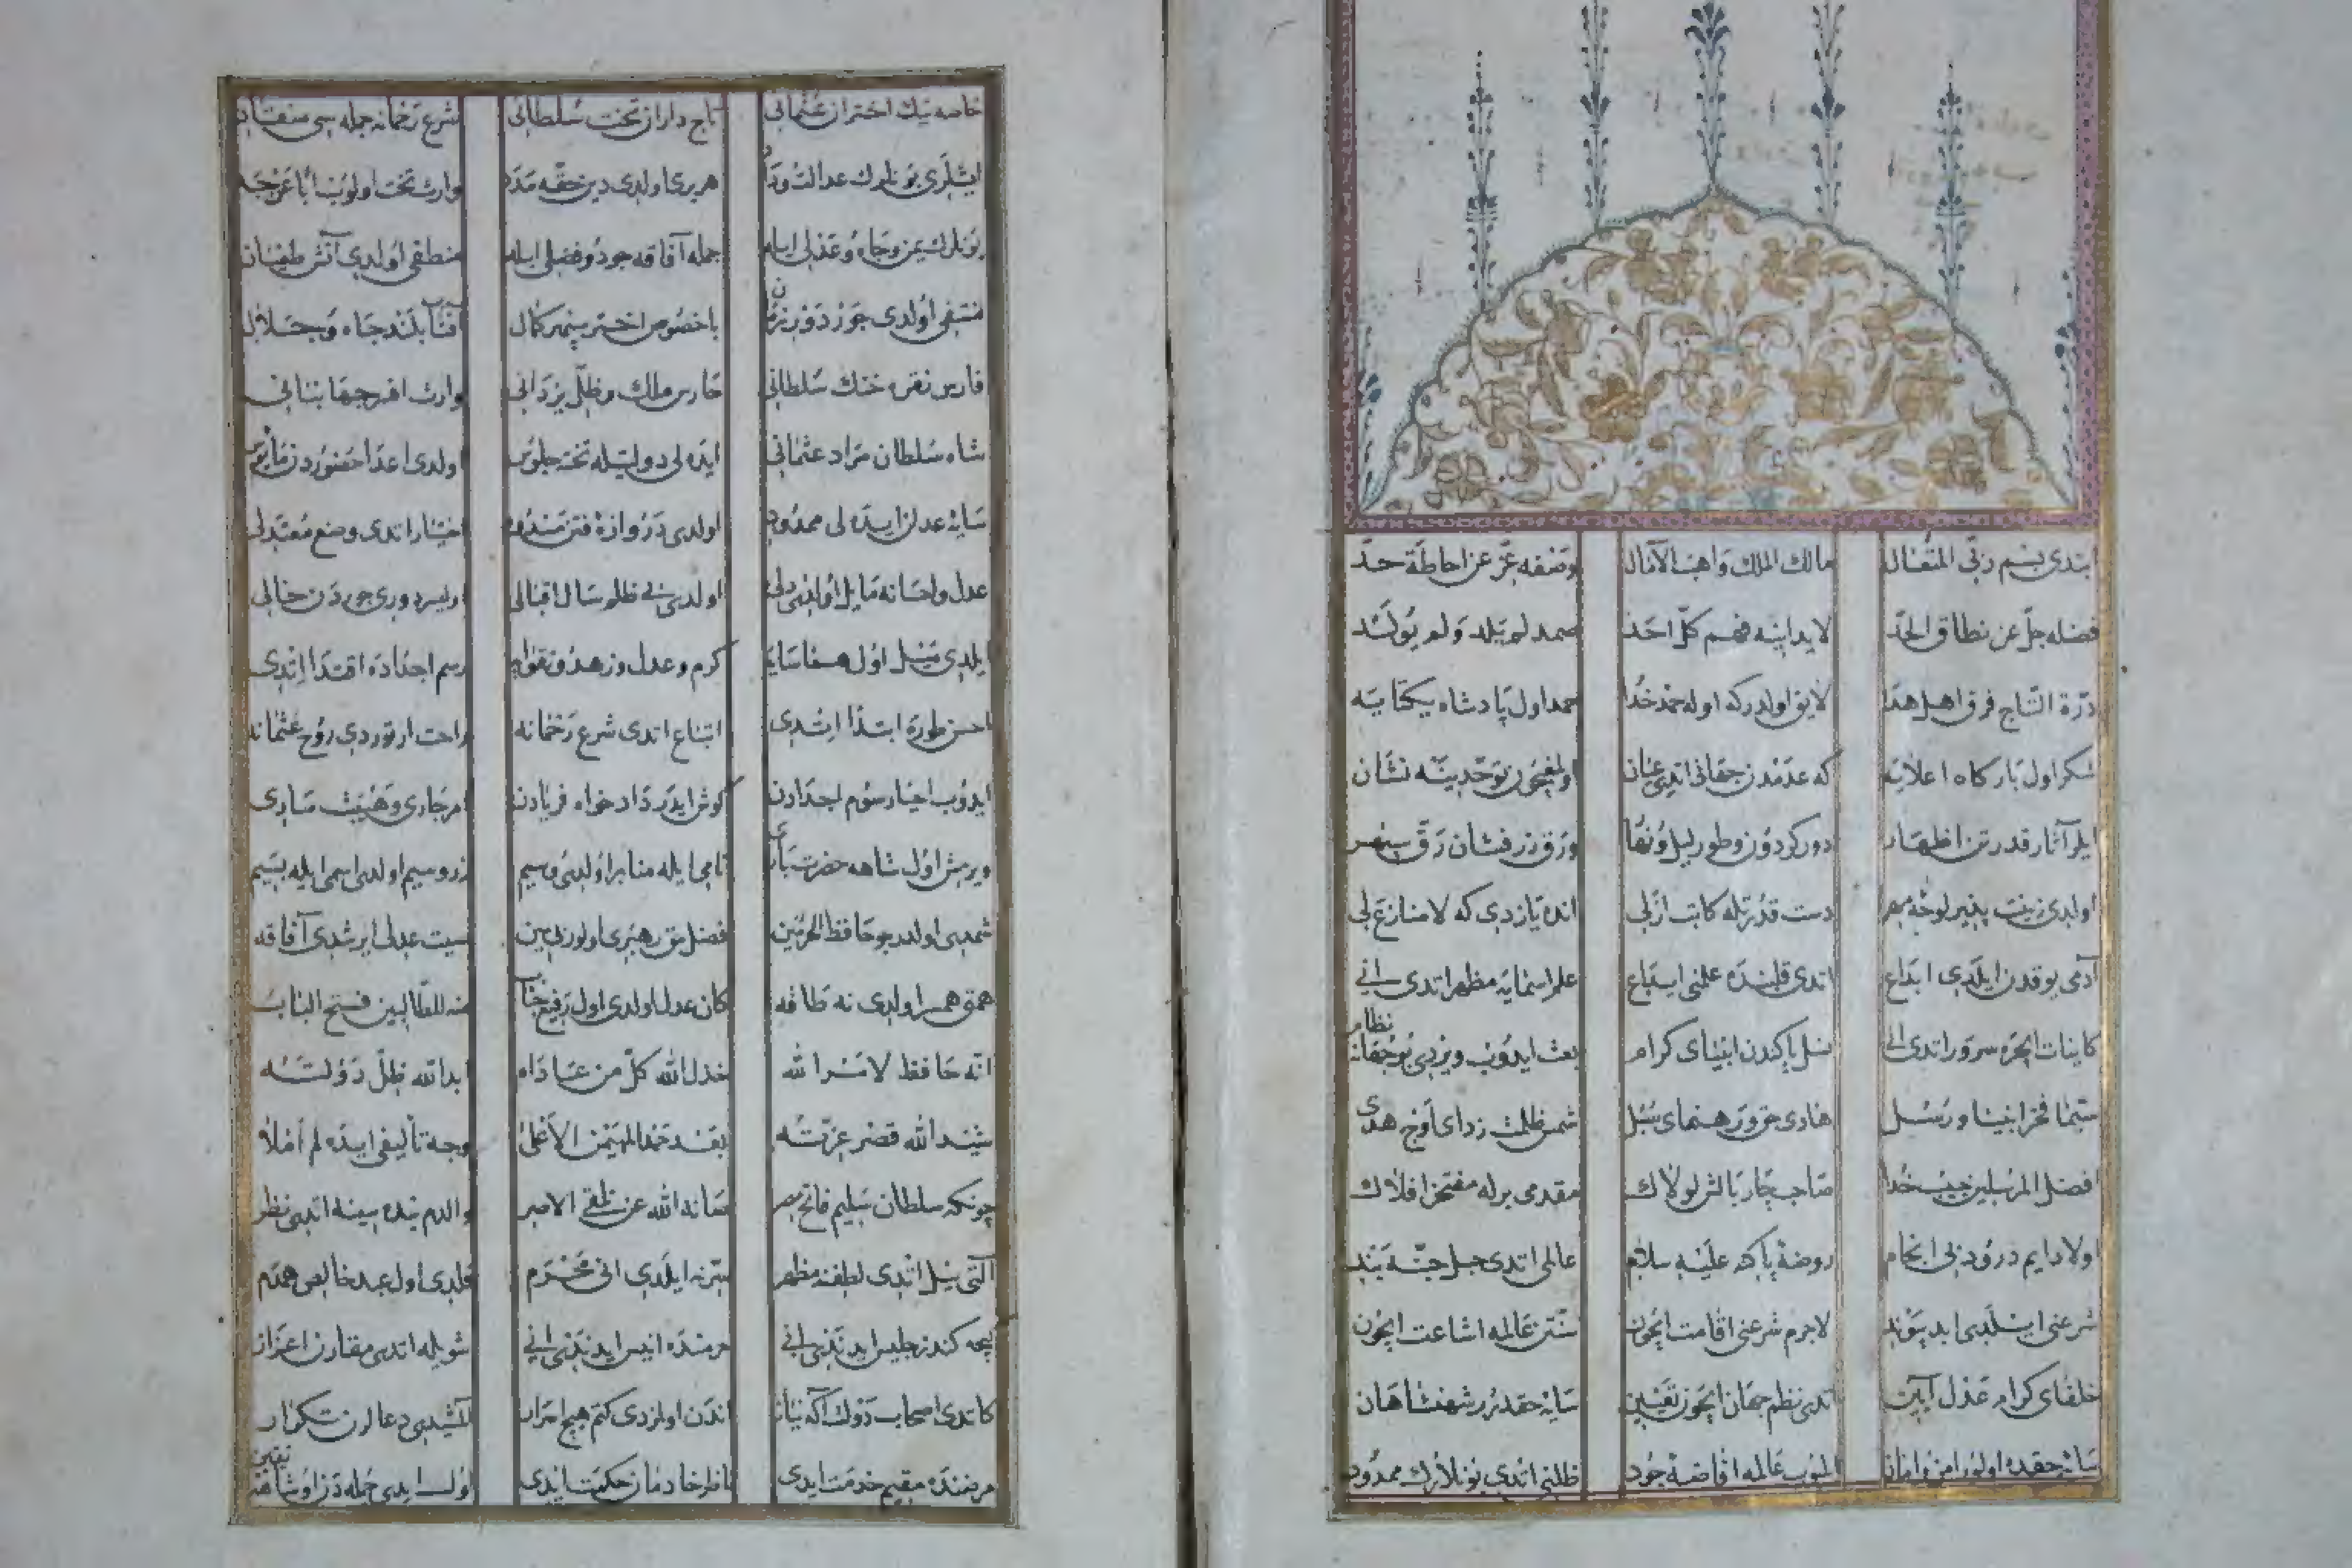 ابتدی بسم ربی المتعال مالك الملك واهب الآمال وصفه عز عن احاطة حد
فضله جل عن نطاق الحد لا یدانیه فهم كل احد صمد لم یلد ولم یولد
درة التاج فرق اهل هدا لایق اولدر كه اوله حمد خدا حمد اول پادشاه یكتایه
شكر اول باركاه اعلایه كه عدمدن جهانی اتدی عیان اولمغیچون توحدینه نشان
ایلر آثار قدرتن اظهار دور كردون وطور لیل ونهار ورق زرفشان رق سپهر
اولدی زینت پذیر لوحۀ مهر دست قدرتله كاتب ازلی انده یازدی كه لا منازع لی
آدمی یوقدن ایلدی ابداع اتدی قلبنده علمنی ایداع علم اسمایه مظهر اتدی انی
كاینات اچره سرور اتدی انی نسل پاكندن انبیای كرام بعث ایدوب ویردی بو جهانه نظام
سیما فخر انبیا ورسل هادی حق ورهنمای سبل شمس ظلمت زدای اوج هدی
افضل المرسلین حبیب خدا صاحب چار بالش لولاك مقدمی برله مفتخر افلاك
اولا دایم درود بی انجام روضۀ پاكه علیه سلام عالمی اتدی
شرعنی ایلدی ابد پیوند لاجرم شرعنی اقامت ایچون سنتن عالمه اشاعت ایچون
خلفای كرام عدل آیین اتدی نظم جهان ایچون تعیین سایۀ حقدرر شهنشاهان
سایۀ حقده اولور امن وامان عالمه افاضۀ جود ظلنی اتدی بونلارك ممدود
خاصه نیك اختران عثمانی تاج داران تخت سلطانی شرع جمله سی
ایشلری بونلرك عدالت وداد هر بری اولدی دین حقه مدد وارث تخت اولوب ابا عن جد
بونلرك یمن وجاه وعدلی ایله جمله آفاقه جود وفضلی ایله منطفی اولدی آتش طغیان
منتفی اولدی جور دور زمان باخصوص اختر سپهر كمال آفتاب بلند جاه وجلال
فارس نقره خنك سلطانی حارس ملك وظل یزدانی وارث افسر جهانبانی
شاه سلطان مراد عثمانی ایده لی دولتیله تخته جلوس اولدی اعدا
سایۀ عدلن ایده لی ممدود اولدی دروازۀ فتن مسدود اختیار اتدی وضع معتدلی
عدل واحسانه مایل اولدی دلی اولدی ظلم سال اقبالی دوری جوردن خالی
ایلدی اول كرم وعدل وزهد وتقوایه رسم اجداده اقتدا اتدی
احسن طوره ابتدا اتدی اتباع اتدی شرع رحمانه راحت ارتوردی روح عثمانه
ایدوب احیا رسوم اجدادن كوش ایدر داد خواه فریادن امر جاری وهیبت ساری
ویرمش اول شاهه حضرت باری نامی ایله منابر اولدی وسیم زر وسیم اولدی اسمی ایله
اولدر بو حافظ الحرمین فضل حق رهبری اولور صیت عدلی ایرشدی آفاقه
همتی همسر اولدی نه طاقه كان عدل اولدی اول رفیع جناب للطالبین فتح الباب
انه حافظ لامر الله خذل الله كل من عاداه ابد الله ظل دولته
شید الله قصر عزته بعد حمد المهیمن الاعلی وجه تألیفی ایده لم املا
چونكه سلطان سلیم فاتح مصر صانه الله عن والدم بنده سینه اتدی نظر
آلتی ییل اتدی لطفنه مظهر ایلدی انی محرم قلدی اول عبد خالص همدم
كیجه كندز جلیس ایدندی انی حرمنده انیس ایدندی انی شویله اتدی مقارن اعزاز
كاتدی اصحاب دولت آكه نیاز اندن اولمزدی كتم هیچ اسرار
مقیم خدمت ایدی ناظر خادمان حكمت ایدی اول ایدی جمله دن